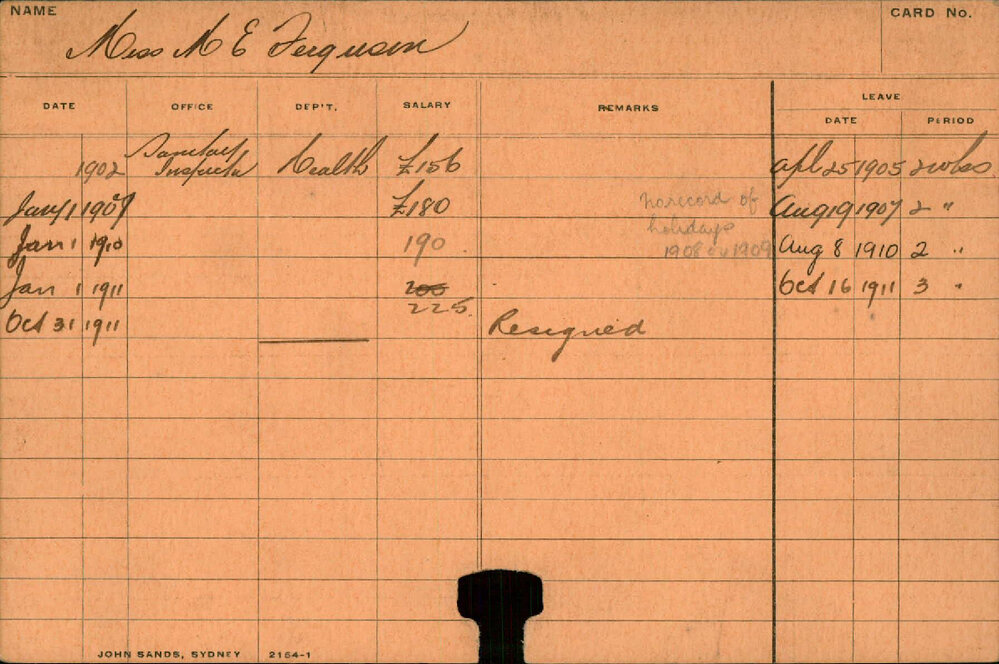 NAME
CARD No.
Miss M E Ferguson
DATE OFFICE DEP'T. SALARY REMARKS LEAVE
DATE PERIOD
1902 Sanitary Inspector Health £156 Apl 25 1905 2 wks
Jany 1 1907 £180 No record of Aug 19 1907 2 "
holidays
Jan 1 1910 190 1908 or 1909 Aug 8 1910 2 "
Jan 1 1911 200 Oct 16 1911 3 "
225
Oct 31 1911 Resigned
JOHN SANDS, SYDNEY 2164-1